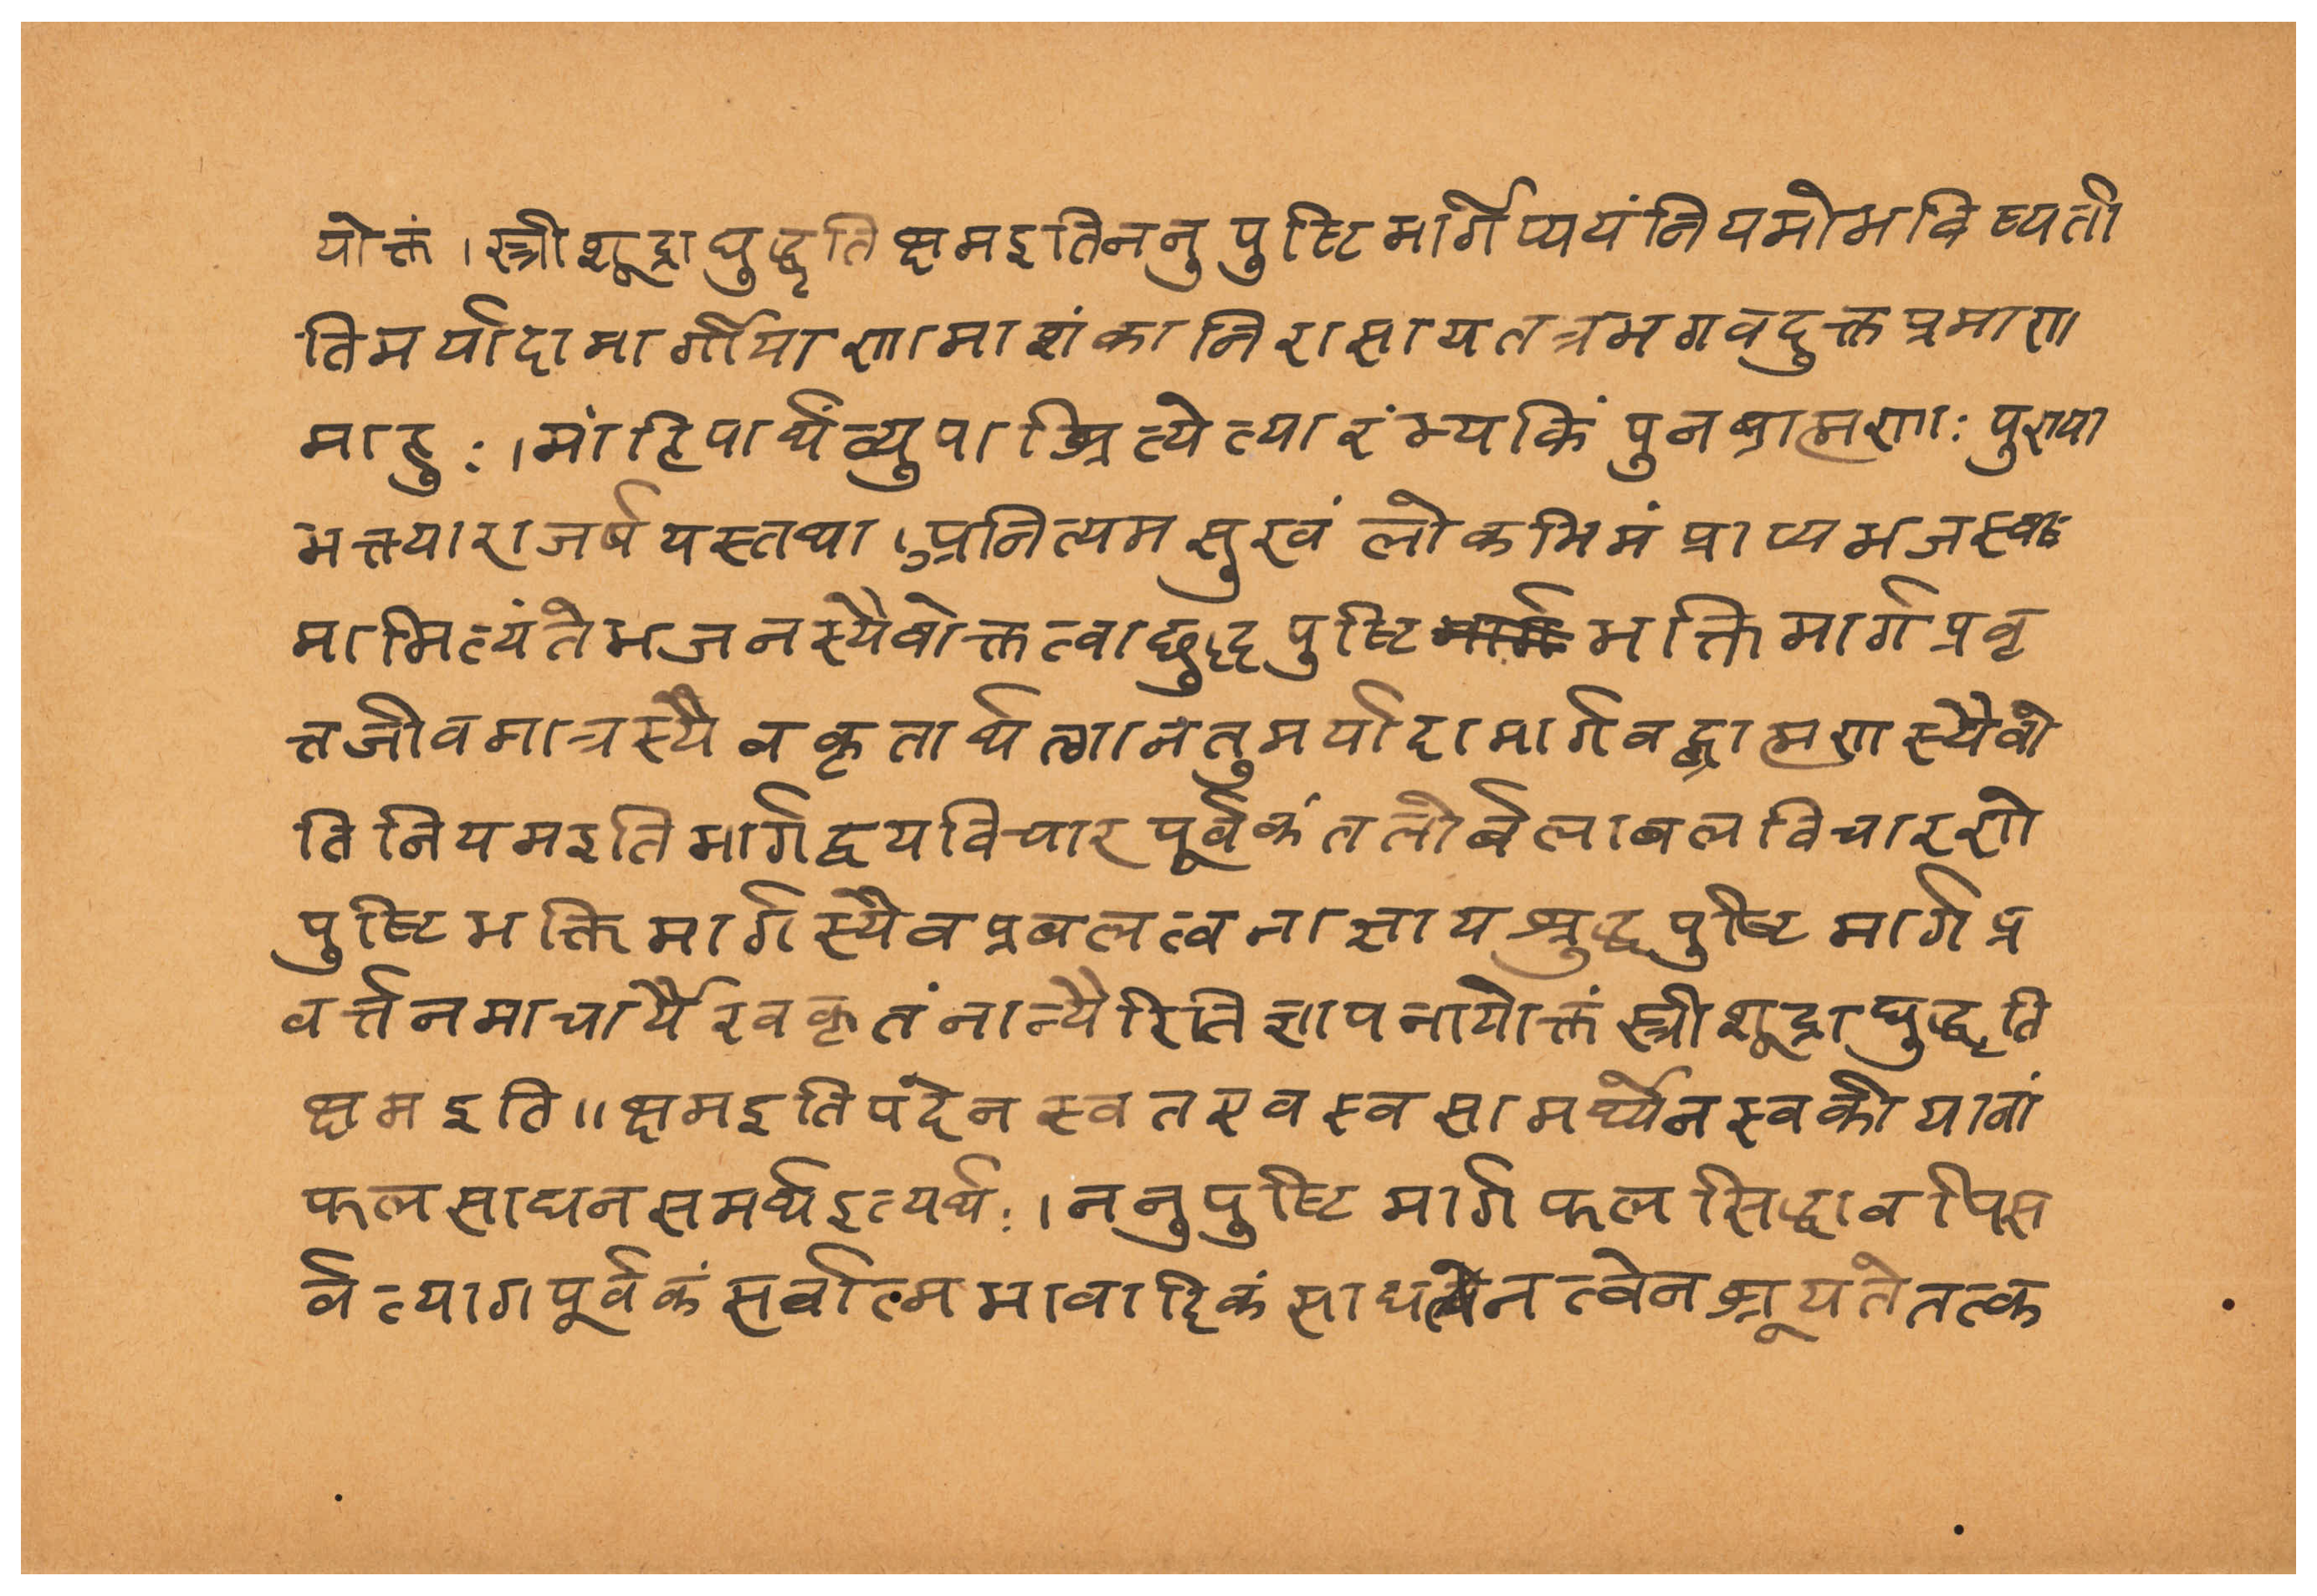 योक्तं । स्त्रीशूद्राद्युद्धृतिक्षमइतिननुपुष्टिमार्गेप्ययंनियमोभविष्यती
तिमर्यादामार्गीयाणामाशंकानिरासायतत्रभगवदुक्तप्रमाण
माहुः । मांहिपार्थंव्युपाश्रित्येत्यारंभ्यकिंपुनब्राह्मणाः पुण्या
भक्त्याराजर्षयस्तथा । प्रनित्यमसुखं लोकमिमं प्राप्यभजस्व
मामित्यंतेभजनस्यैवोक्तत्वाछुद्धपुष्टिभक्तिमार्गप्रवृ
त्तजीवमात्रस्यैवकृतार्थत्वानतुमर्यादामार्गवद्ब्राह्मणस्यैवो
तिनियमइतिमार्गद्वयविचारपूर्वकंतलोर्बलाबलविचारणे
पुष्टिभक्तिमार्गस्यैवप्रबलत्वनाज्ञायश्रुद्धपुष्टिमार्गप्र
वर्त्तनमाचार्यैरवकृतंनान्यैरितिज्ञापनायोक्तंस्त्रीशूद्राद्युद्धृति
क्षमइति ॥ क्षमइतिपदेनस्वतएवस्वसामर्थ्येनस्वकीयानां
फलसाधनसमर्थइत्यर्थः । ननुपुष्टिमार्गफलसिद्धावपिस
र्वत्यागपूर्वकंसर्वात्मभावादिकंसाधनत्वेनश्रूयतेतत्क